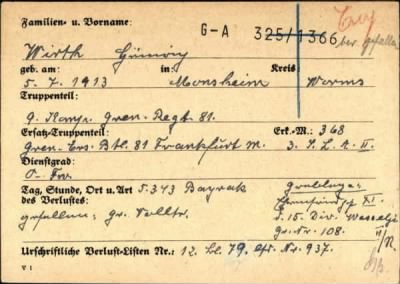 Familien- u. Vorname: G-A 325/1366
ber. gefallen
Wirth
geb. am: in Kreis
5. 7. 1913 Monsheim Worms
Truppenteil:
9. Komp. Gren. Regt. 81.
Ersatz-Truppenteil: Erk.-M.: 368
Gren. Ers. Btl. 81 Frankfurt M. 3.
Dienstgrad:
O-Fw.
Tag, Stunde, Ort u. Art 5.3.43 Bayrak Grablage:
des Verlustes: XI.
gefallen: Gr. Volltr. d. 15. Div.
Gr. Nr. 108.
Urschriftliche Verlust-Listen Nr.: 12. 79. lfd. Nr. 937.
V 1